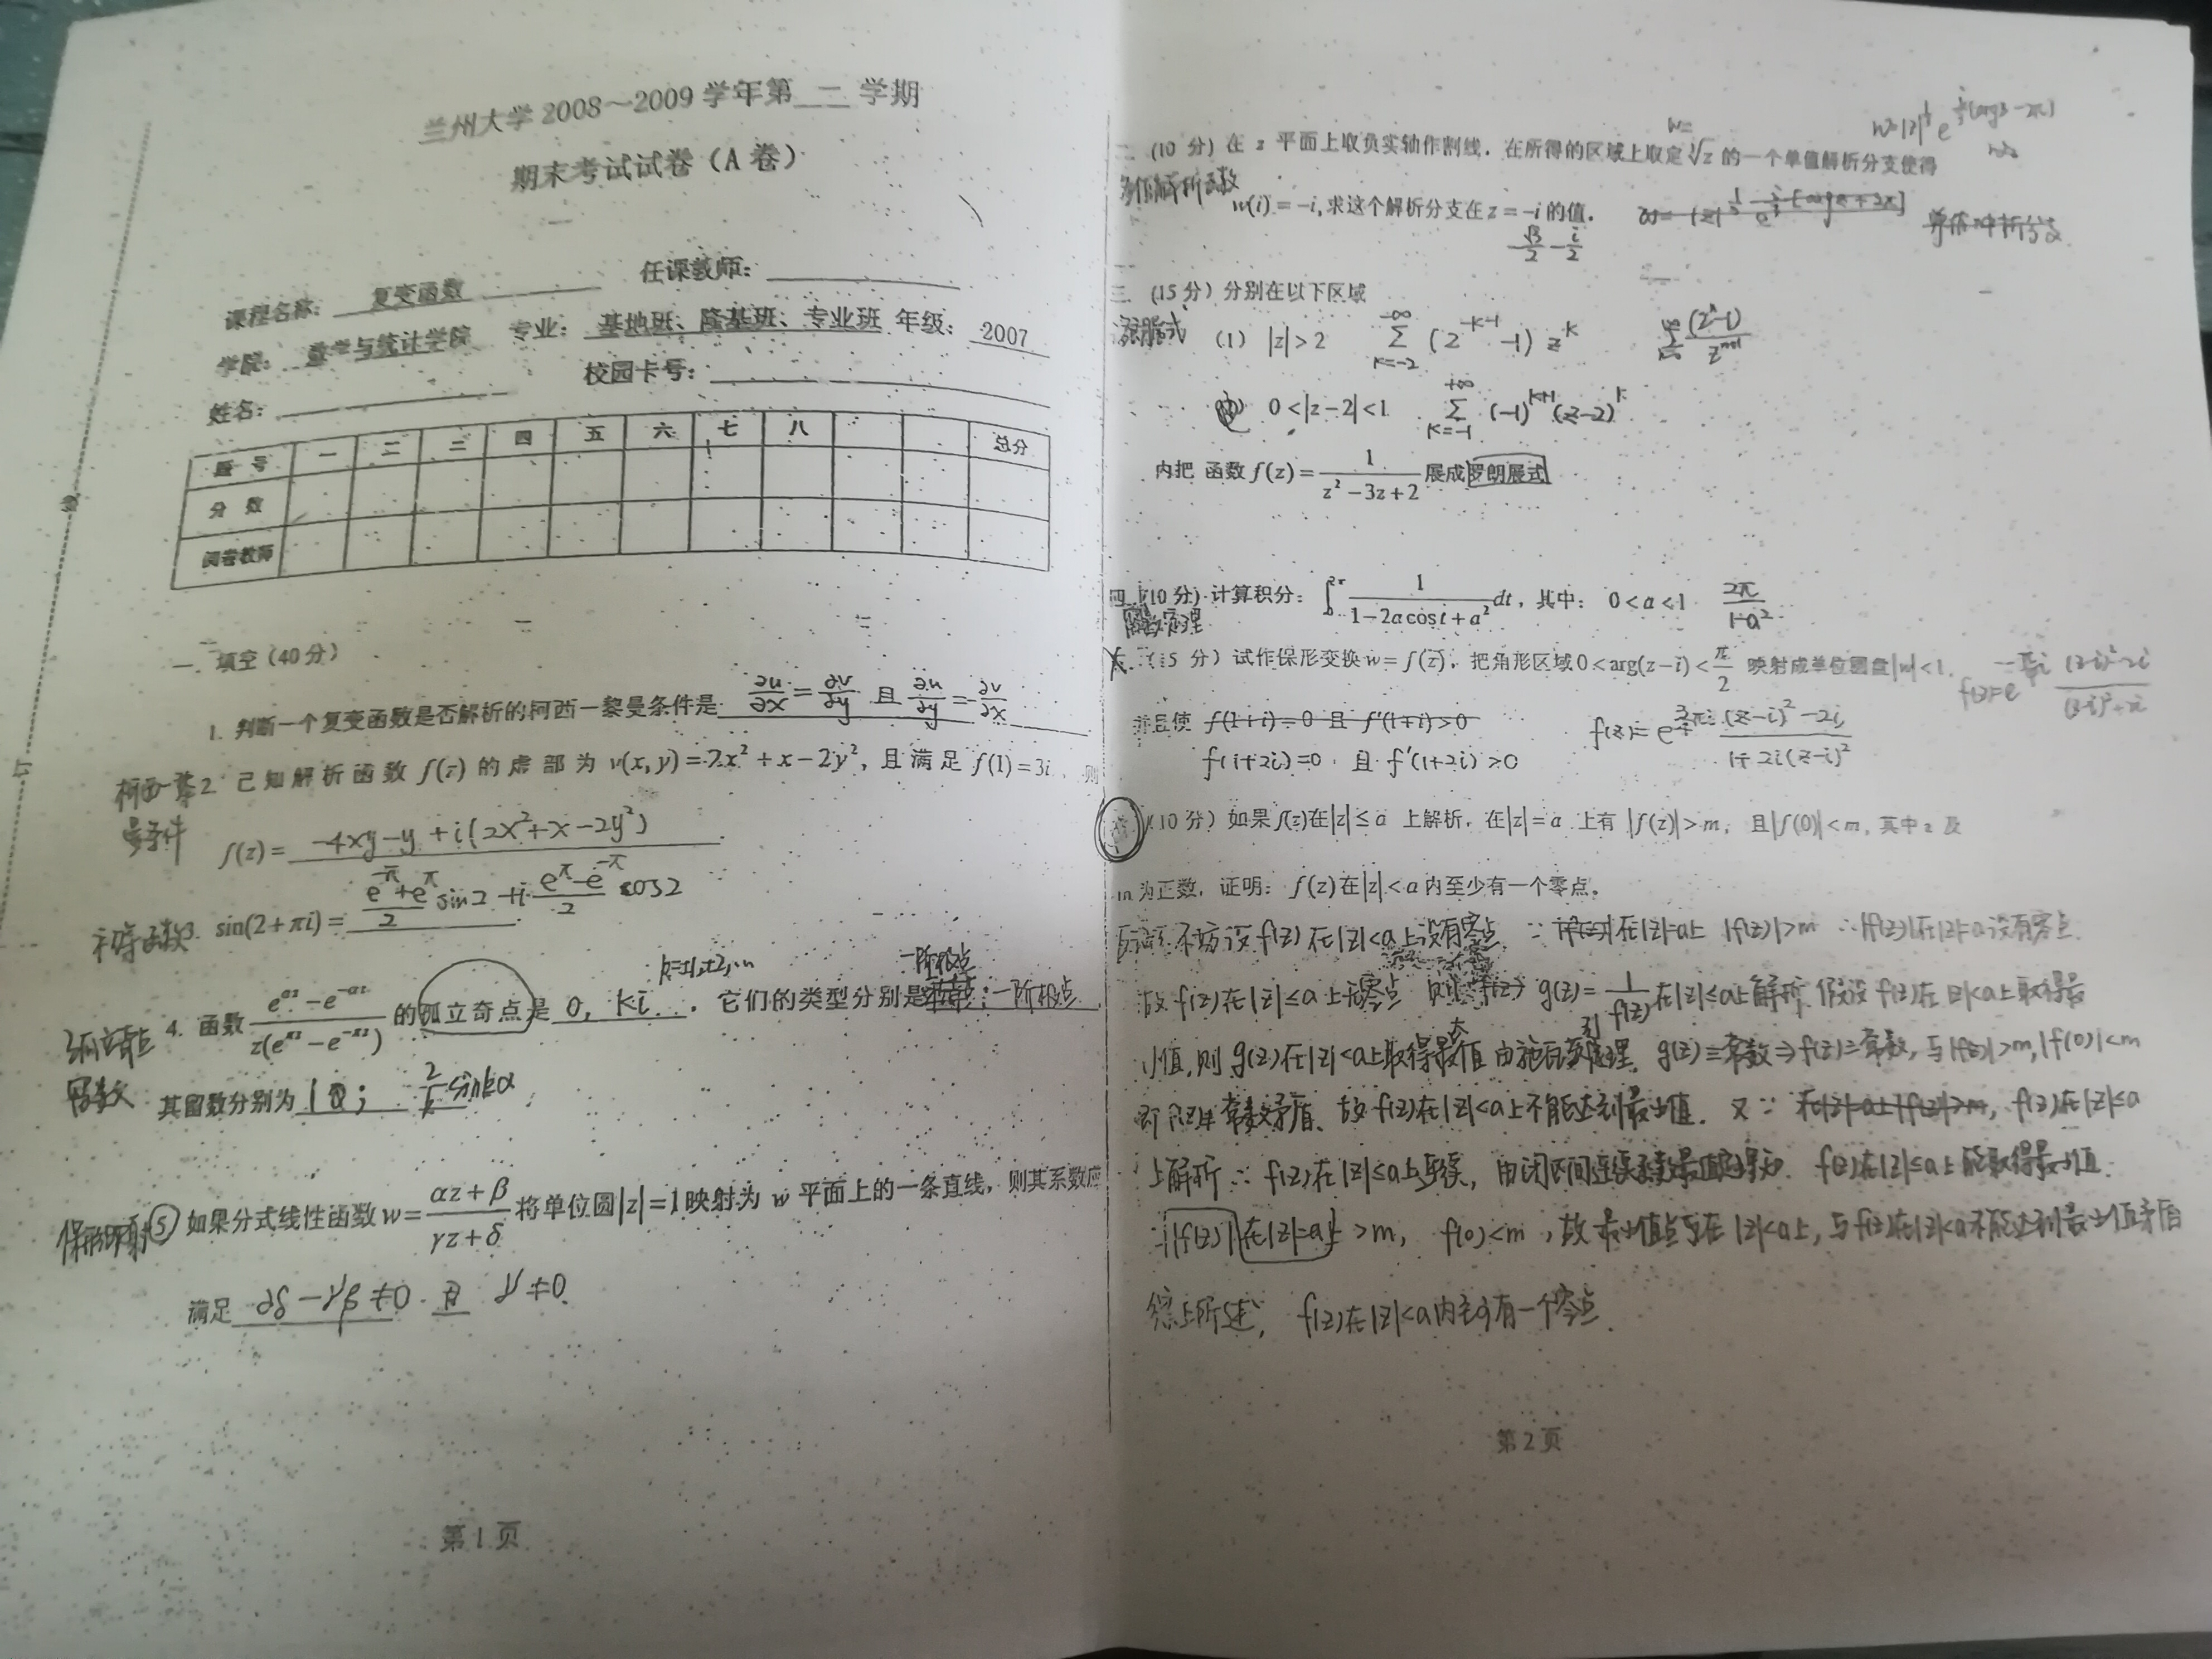 兰州大学 2008～2009 学年第 二 学期
期末考试试卷（A 卷）
课程名称: 复变函数 任课教师:
学院: 数学与统计学院 专业: 基地班、隆基班、专业班 年级: 2007
姓名: 校园卡号:
题 号 一 二 三 四 五 六 七 八 总分
分 数
阅卷教师
一. 填空（40 分）
1. 判断一个复变函数是否解析的柯西—黎曼条件是 ∂u/∂x = ∂v/∂y 且 ∂u/∂y = -∂v/∂x
2. 已知解析函数 f(z) 的虚部为 v(x,y)=2x²+x−2y², 且满足 f(1)=3i, 则
f(z)= -4xy-y+i(2x²+x-2y²)
3. sin(2+πi)= (e^{-π}+e^{π})/2 sin2 + i (e^{π}-e^{-π})/2 cos2
k=±1,±2,… 一阶极点
孤立奇点 4. 函数 (e^{αz}−e^{−αz})/(z(e^{πz}−e^{−πz})) 的孤立奇点是 0, ki . 它们的类型分别是 ; 一阶极点
留数 其留数分别为
保形映射 ⑤ 如果分式线性函数 w=(αz+β)/(γz+δ) 将单位圆|z|=1映射为 w 平面上的一条直线, 则其系数应
满足 αδ-γβ≠0 且 γ≠0
二 (10 分) 在 z 平面上取负实轴作割线. 在所得的区域上取定 ∛z 的一个单值解析分支使得
多值解析函数 w(i)=−i, 求这个解析分支在 z=−i 的值. 单值解析分支
√3/2 - i/2
三 (15 分) 分别在以下区域
(1) |z|>2 ∑_{k=-2}^{-∞} (2^{-k-1}-1) z^k
0<|z−2|<1 ∑_{k=-1}^{+∞} (-1)^{k+1}(z-2)^k
内把 函数 f(z)=1/(z²−3z+2) 展成罗朗展式
四 (10 分) 计算积分: ∫₀^{2π} 1/(1−2a cos t+a²) dt, 其中: 0<a<1 2π/(1-a²)
留数定理
(15 分) 试作保形变换 w=f(z), 把角形区域 0<arg(z−i)<π/2 映射成单位圆盘|w|<1.
并且使 f(1+i)=0 且 f'(1+i)>0
f(1+2i)=0 且 f'(1+2i)>0
(10 分) 如果 f(z)在|z|≤a 上解析, 在|z|=a 上有 |f(z)|>m, 且|f(0)|<m, 其中 a 及
m 为正数, 证明: f(z)在|z|<a 内至少有一个零点。
不妨设 f(z) 在|z|<a上没有零点 ∵ 在|z|=a上 |f(z)|>m ∴ |f(z)|在|z|=a没有零点
故 f(z)在|z|≤a上无零点 则 g(z)=1/f(z) 在|z|≤a上解析. 假设 f(z)在|z|<a上取得最
小值, 则 g(z)在|z|<a上取得最大值 由施瓦茨引理, g(z)≡常数⇒f(z)≡常数, 与|f(z)|>m, |f(0)|<m
矛盾, 故 f(z)在|z|<a上不能达到最小值. 又∵ 在|z|=a上|f(z)|>m, f(z)在|z|≤a
上解析 ∴ f(z)在|z|≤a上连续, f(z)在|z|≤a上能取得最小值.
∵|f(z)|在|z|=a上>m, f(0)<m, 故最小值点在|z|<a上, 与f(z)在|z|<a不能达到最小值矛盾
综上所述, f(z)在|z|<a内至少有一个零点.
第 1 页
第 2 页